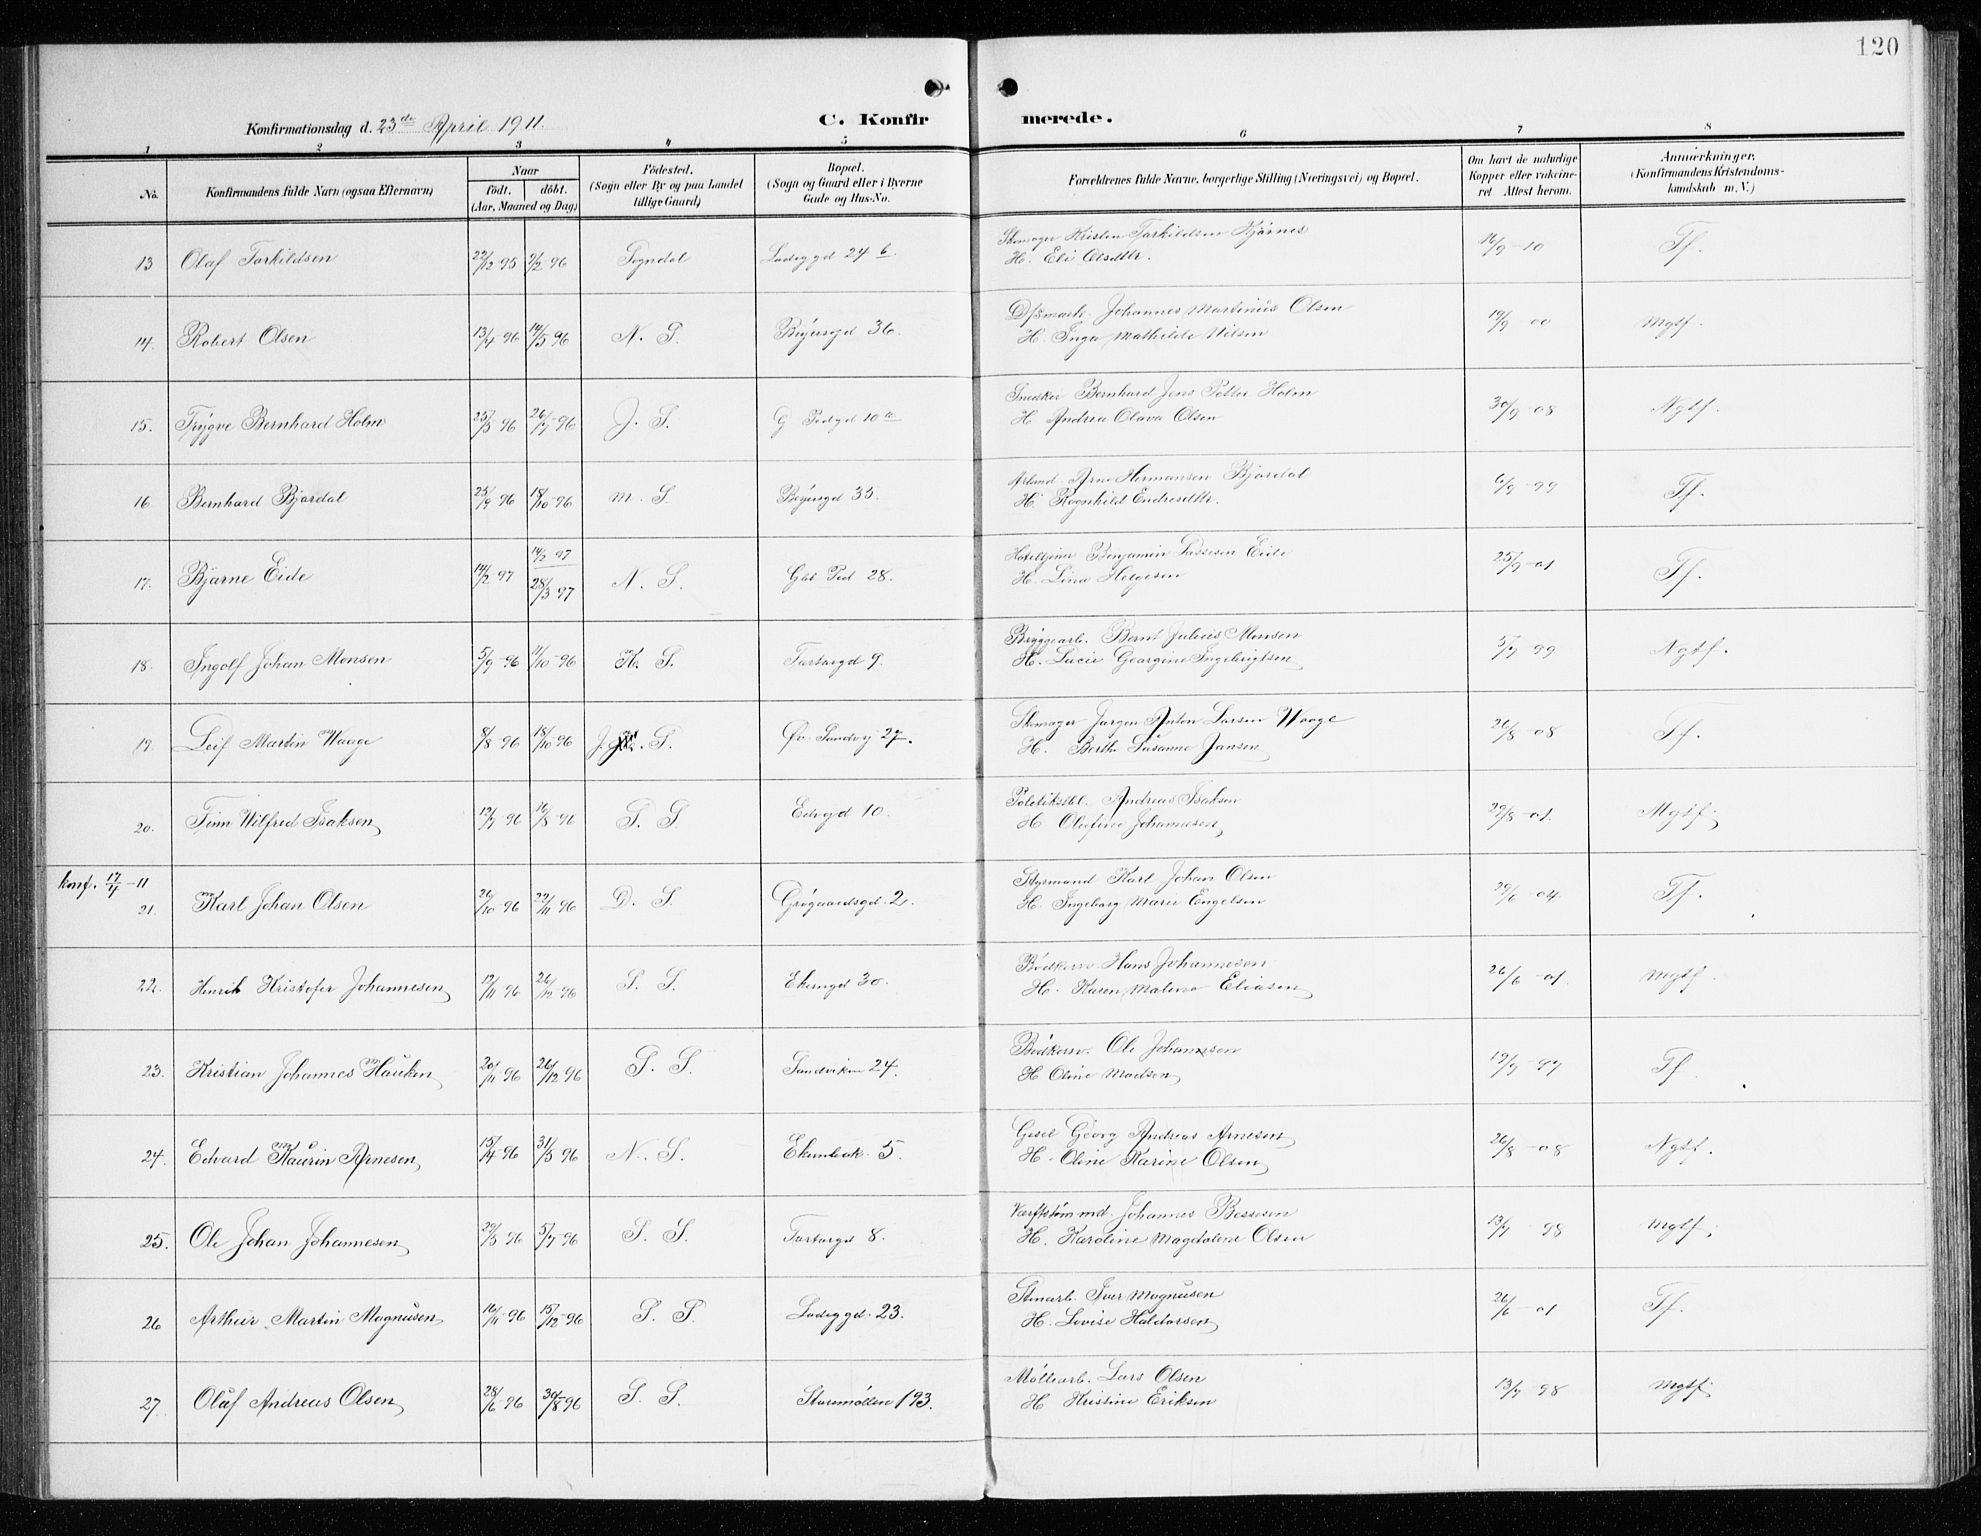 120
Konfirmationsdag d. 23de April 1911.
C. Konfirmerede.
1 2 3 4 5 6 7 8
No. | Konfirmandens fulde Navn (ogsaa Efternavn) | Naar födt. döbt. (Aar, Maaned og Dag) | Födested. (Sogn eller By og paa Landet tillige Gaard) | Bopæl. (Sogn og Gaard eller i Byerne Gade og Hus-No. | Forældrenes fulde Navne, borgerlige Stilling (Næringsvei) og Bopæl. | Om havt de naturlige Kopper eller vakcineret. Attest herom. | Anmærkninger. (Konfirmandens Kristendomskundskab m. V.)
13 Olaf Torkildsen 22/12 95 2/2 96 Sogndal Ladeggd 24 b. Skomager Kristen Torkildsen Kjörnes 16/9-10 Tf.
H. Eli Olsdttr.
14. Robert Olsen 13/4 96 14/5 96 N. S. Böyersgd 36. D/smask. Johannes Martinius Olsen 19/9 00 Mgtf.
H. Inga Mathilde Nilsen
15. Trygve Bernhard Holm 25/5 96 26/7 96 J. S. 10 a Snedker Bernhard Jens Petter Holm 30/9-08 Ngtf.
H. Andrea Olava Olsen
16. Bernhard Bjordal 25/9 96 18/10-96 M. S. Böyersgd 35. Arne Hermansen Bjordal 6/9-99 Tf.
H. Ragnhild Endresdttr.
17. Bjarne Eide 14/2 97 14/2 97 28/3 97 N. S. 28. Benjamin Lassesen Eide 25/9-01 Tf.
H. Lina Helgesen
18. Ingolf Johan Monsen 5/9-96 11/10-96 K. S. Tartargd 9. Bryggearb. Bernt Julius Monsen 5/9 99 Ngtf.
H. Lucie Georgine Ingebrigtsen
19. Leif Martin Waage 8/8-96 18/10-96 J. S. Öv Sandvg 27. Skomager Jörgen Anton Larsen Waage 26/8-08 Tf.
H. Berthe Susanne Jansen
20. Finn Wilfred Isaksen 12/7 96 16/8-96 S. S Edvgd 10. Andreas Isaksen 29/8-01. Mgtf.
H. Olufine Johannesen
konf. 17/4-11
21. Karl Johan Olsen 26/10 96 22/11 96 D. S. Gröqaardsgd. 2. Styrmand Karl Johan Olsen 29/6 04. Tf.
H. Ingeborg Marie Engelsen
22. Henrik Kristofer Johannesen 12/11 96 26/12 96 S. S. Ekerngd 30. Bödkersv. Hans Johannesen 26/6-01. Mgtf.
H. Karen Malene Eliasen
23. Kristian Johannes Hauken 20/11 96 26/12 96 S. S. Sandviken 24. Bödkersv. Ole Johannesen 12/7-97 Tf.
H Oline Madsen
24. Edvard Kaurin Arnesen 15/4-96 31/5 96 N. S. 5. Georg Andreas Arnesen 26/8-08 Ngtf.
H. Oline Karine Olsen
25. Ole Johan Johannesen 29/5 96 5/7 96 S. S. Tartargd 8. Johannes Bessesen 13/7 98 Mgtf.
H. Karoline Magdalene Olsen
26 Arthur Martin Magnusen 16/11-96 15/12-96 S. S. Ladeggd. 23. Stenarb. Iver Magnusen 26/6-01 Tf.
H. Lovise Haldorsen
27. Olaf Andreas Olsen 28/6-96 30/8 96 S. S. Storemöllen 193. Möllearb. Lars Olsen 13/7 98 Mgtf.
H Kristine Eriksen